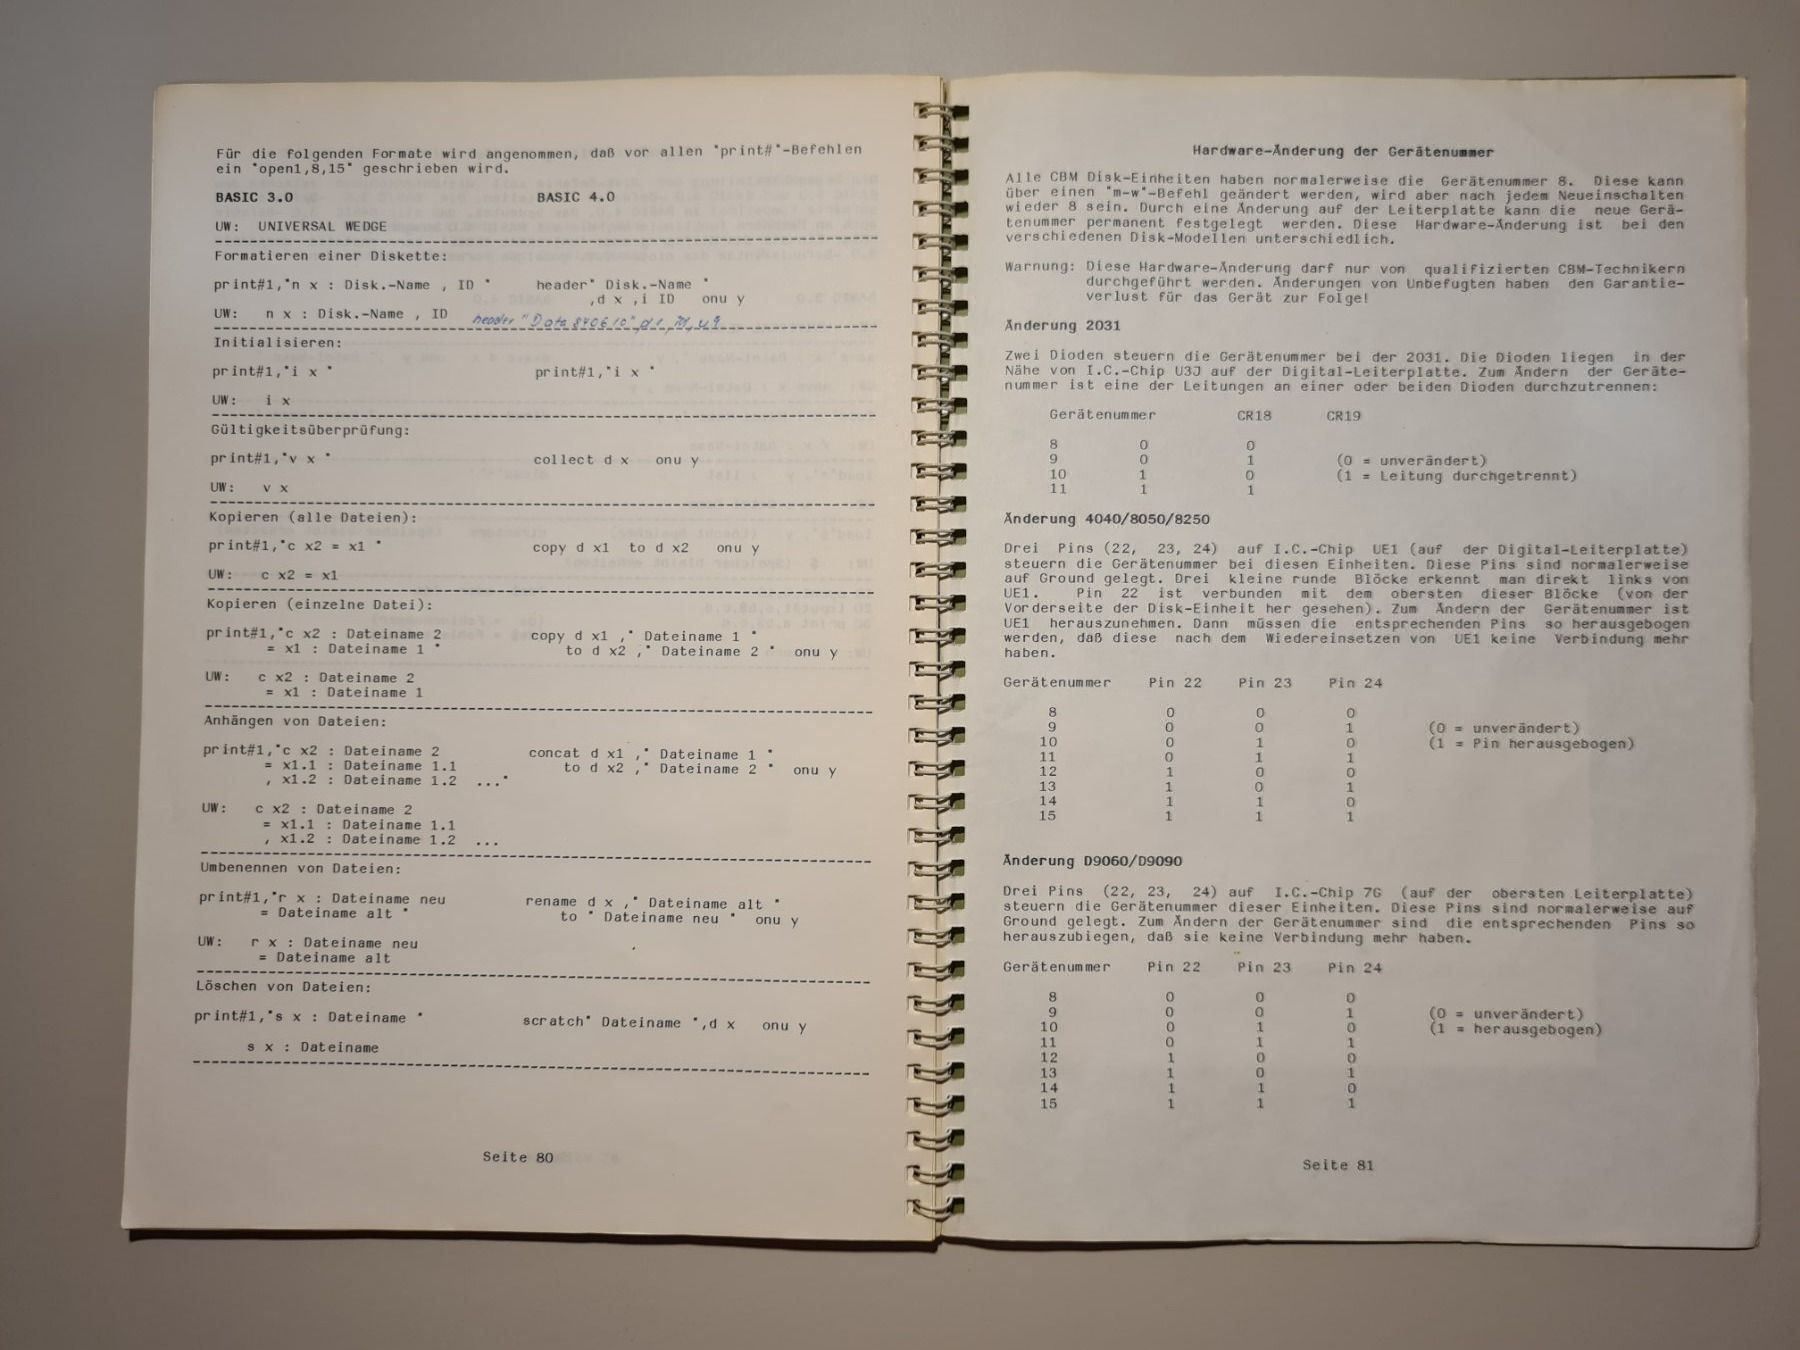 Für die folgenden Formate wird angenommen, daß vor allen "print#"-Befehlen
ein "open1,8,15" geschrieben wird.
BASIC 3.0 BASIC 4.0
UW: UNIVERSAL WEDGE
Formatieren einer Diskette:
print#1,"n x : Disk.-Name , ID " header" Disk.-Name "
,d x ,i ID onu y
UW: n x : Disk.-Name , ID header "Data
Initialisieren:
print#1,"i x " print#1,"i x "
UW: i x
Gültigkeitsüberprüfung:
print#1,"v x " collect d x onu y
UW: v x
Kopieren (alle Dateien):
print#1,"c x2 = x1 " copy d x1 to d x2 onu y
UW: c x2 = x1
Kopieren (einzelne Datei):
print#1,"c x2 : Dateiname 2 copy d x1 ," Dateiname 1 "
= x1 : Dateiname 1 " to d x2 ," Dateiname 2 " onu y
UW: c x2 : Dateiname 2
= x1 : Dateiname 1
Anhängen von Dateien:
print#1,"c x2 : Dateiname 2 concat d x1 ," Dateiname 1 "
= x1.1 : Dateiname 1.1 to d x2 ," Dateiname 2 " onu y
, x1.2 : Dateiname 1.2 ..."
UW: c x2 : Dateiname 2
= x1.1 : Dateiname 1.1
, x1.2 : Dateiname 1.2 ...
Umbenennen von Dateien:
print#1,"r x : Dateiname neu rename d x ," Dateiname alt "
= Dateiname alt " to " Dateiname neu " onu y
UW: r x : Dateiname neu
= Dateiname alt
Löschen von Dateien:
print#1,"s x : Dateiname " scratch" Dateiname ",d x onu y
s x : Dateiname
Seite 80
Hardware-Änderung der Gerätenummer
Alle CBM Disk-Einheiten haben normalerweise die Gerätenummer 8. Diese kann
über einen "m-w"-Befehl geändert werden, wird aber nach jedem Neueinschalten
wieder 8 sein. Durch eine Änderung auf der Leiterplatte kann die neue Gerä-
tenummer permanent festgelegt werden. Diese Hardware-Änderung ist bei den
verschiedenen Disk-Modellen unterschiedlich.
Warnung: Diese Hardware-Änderung darf nur von qualifizierten CBM-Technikern
durchgeführt werden. Änderungen von Unbefugten haben den Garantie-
verlust für das Gerät zur Folge!
Änderung 2031
Zwei Dioden steuern die Gerätenummer bei der 2031. Die Dioden liegen in der
Nähe von I.C.-Chip U3J auf der Digital-Leiterplatte. Zum Ändern der Geräte-
nummer ist eine der Leitungen an einer oder beiden Dioden durchzutrennen:
Gerätenummer CR18 CR19
8 0 0
9 0 1 (0 = unverändert)
10 1 0 (1 = Leitung durchgetrennt)
11 1 1
Änderung 4040/8050/8250
Drei Pins (22, 23, 24) auf I.C.-Chip UE1 (auf der Digital-Leiterplatte)
steuern die Gerätenummer bei diesen Einheiten. Diese Pins sind normalerweise
auf Ground gelegt. Drei kleine runde Blöcke erkennt man direkt links von
UE1. Pin 22 ist verbunden mit dem obersten dieser Blöcke (von der
Vorderseite der Disk-Einheit her gesehen). Zum Ändern der Gerätenummer ist
UE1 herauszunehmen. Dann müssen die entsprechenden Pins so herausgebogen
werden, daß diese nach dem Wiedereinsetzen von UE1 keine Verbindung mehr
haben.
Gerätenummer Pin 22 Pin 23 Pin 24
8 0 0 0
9 0 0 1 (0 = unverändert)
10 0 1 0 (1 = Pin herausgebogen)
11 0 1 1
12 1 0 0
13 1 0 1
14 1 1 0
15 1 1 1
Änderung D9060/D9090
Drei Pins (22, 23, 24) auf I.C.-Chip 7G (auf der obersten Leiterplatte)
steuern die Gerätenummer dieser Einheiten. Diese Pins sind normalerweise auf
Ground gelegt. Zum Ändern der Gerätenummer sind die entsprechenden Pins so
herauszubiegen, daß sie keine Verbindung mehr haben.
Gerätenummer Pin 22 Pin 23 Pin 24
8 0 0 0
9 0 0 1 (0 = unverändert)
10 0 1 0 (1 = herausgebogen)
11 0 1 1
12 1 0 0
13 1 0 1
14 1 1 0
15 1 1 1
Seite 81